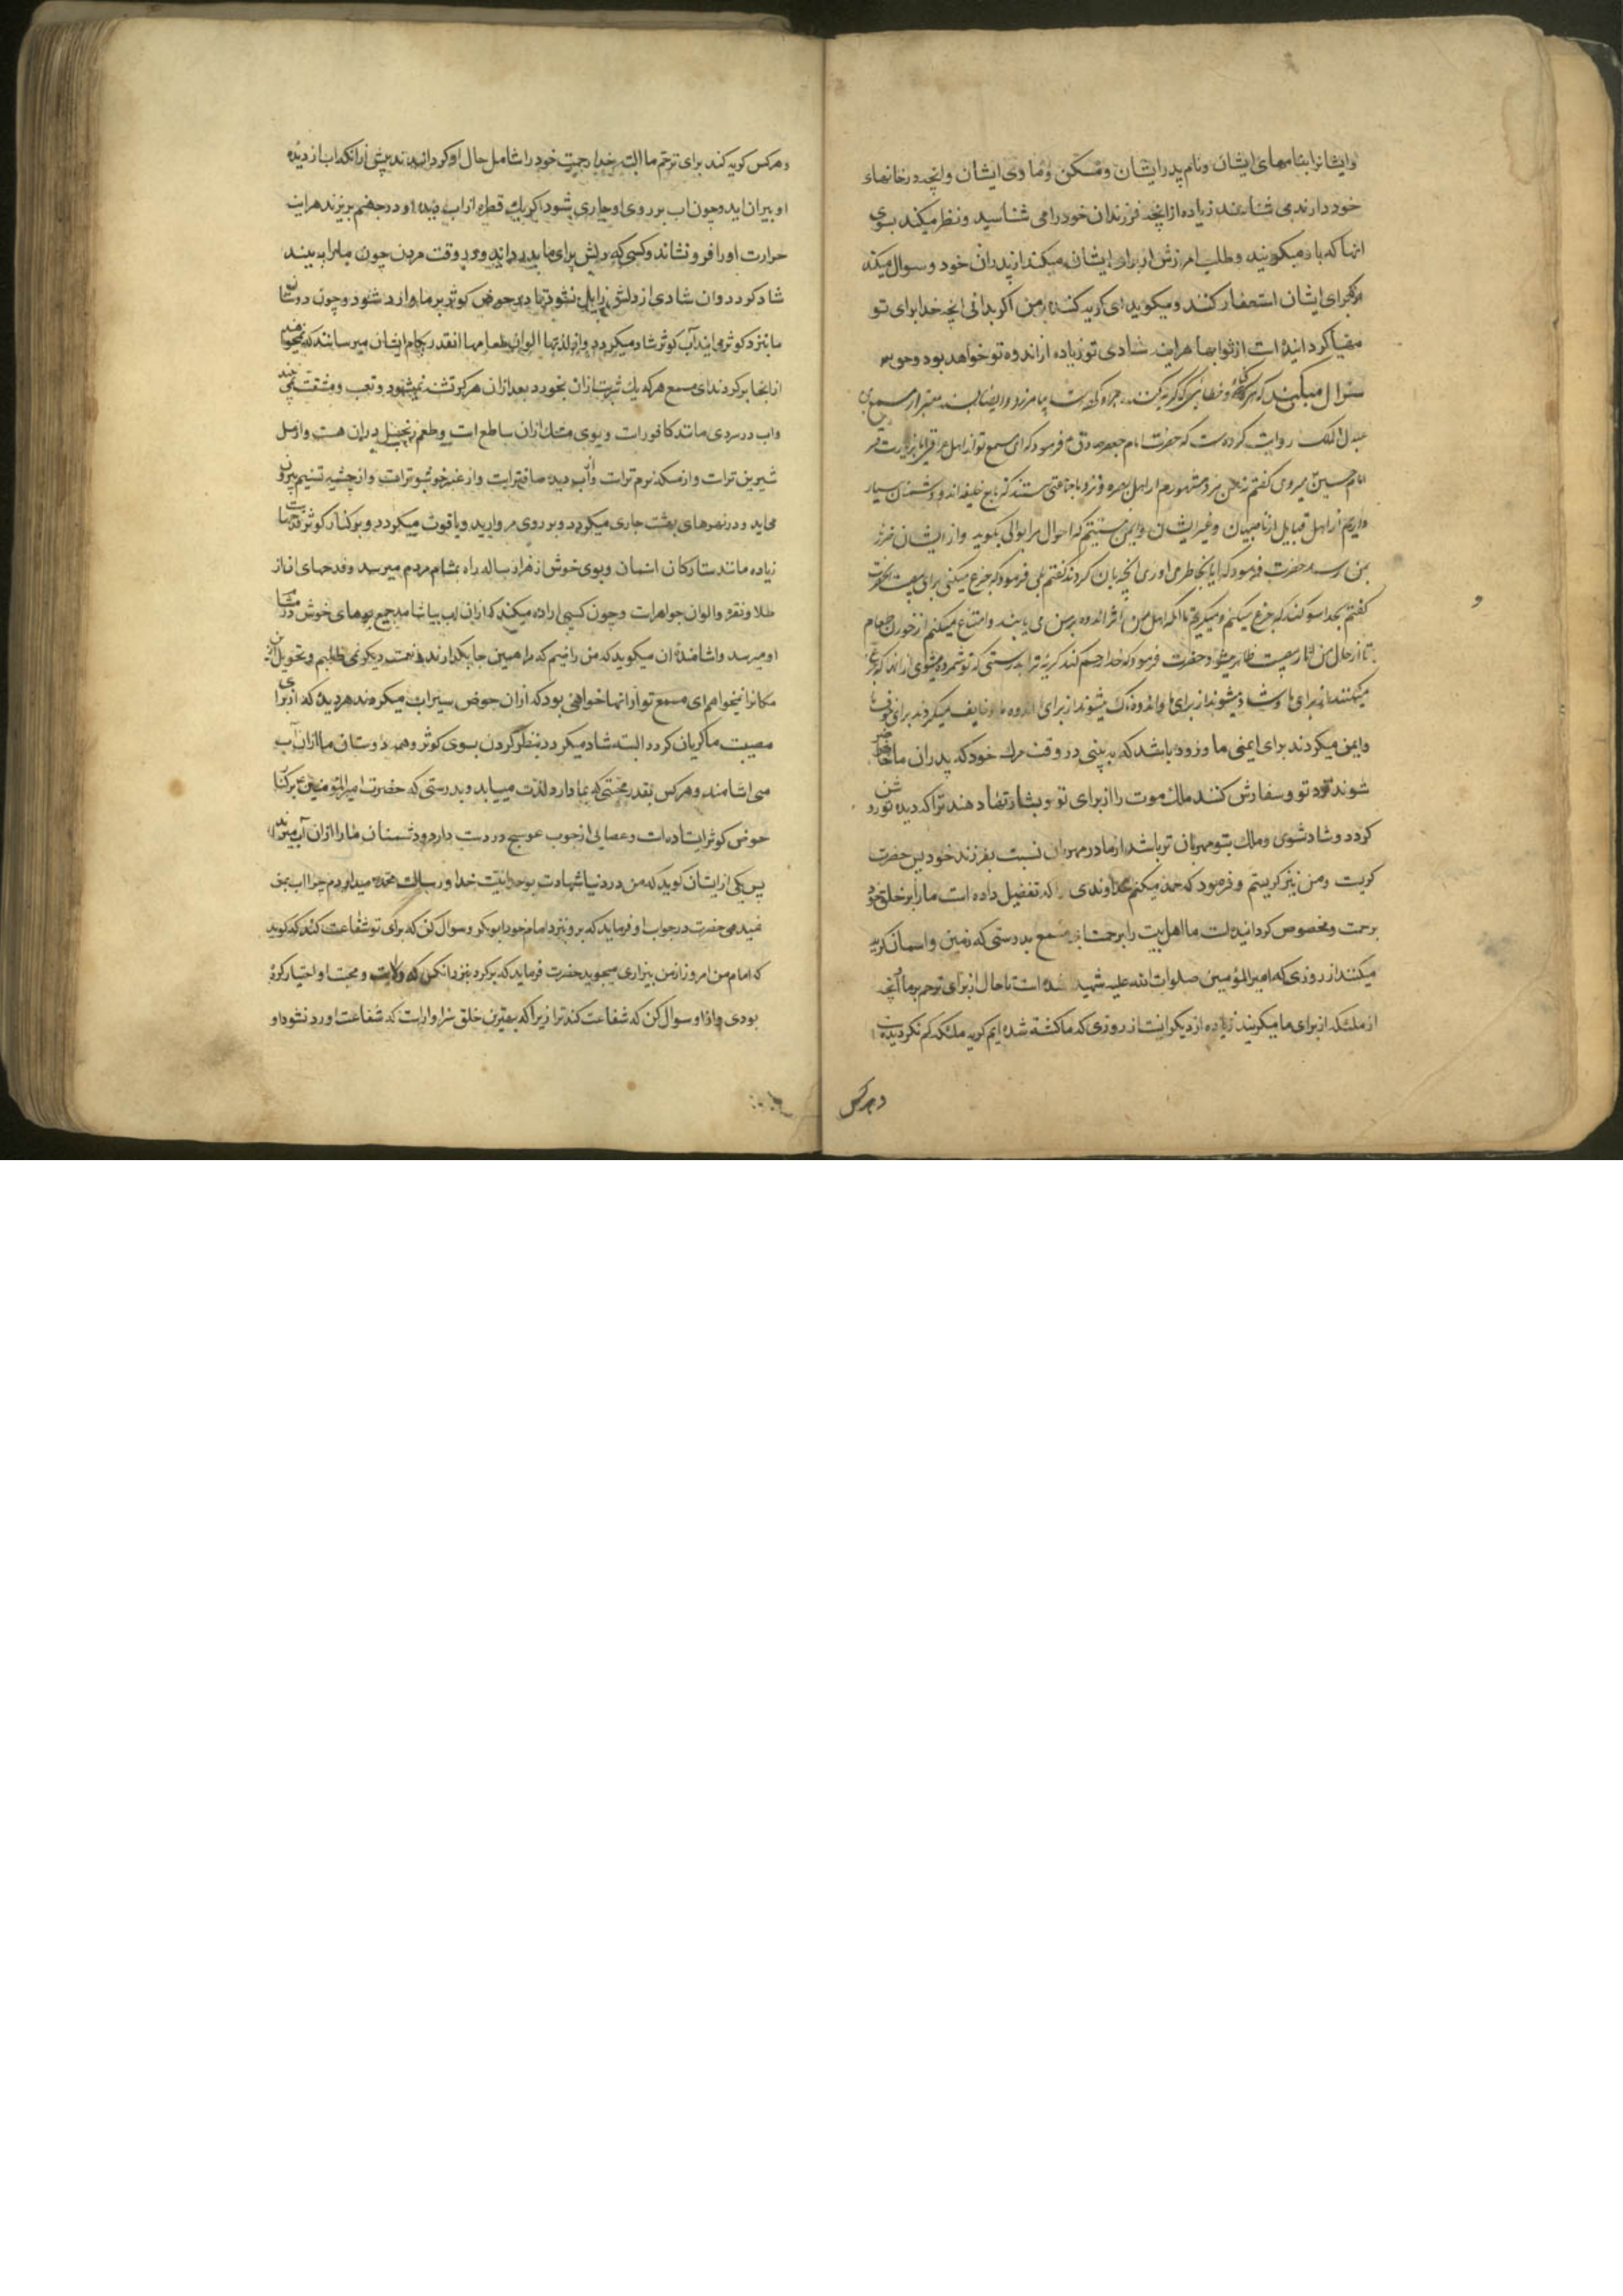 وایشانرا بنامهای ایشان ونام پدر ایشان ومسکن وما وی ایشان وانچه در خانهاء
خود دارند می شناسند زیاده از انچه فرزندان خود را می شناسید ونظر میکند بسوی
انها که باو میکویند وطلب امرزش از برای ایشان میکند از پدران خود وسوال میکند
که برای ایشان استغفار کنند ومیکوید ای کریه کننده بر من اکر بدانی انچه خدا برای تو
مهیا کردانیده است از ثوابها هراینه شادی تو زیاده از اندوه تو خواهد بود
سئوال میکند که هر کناه وخطائی که کریه کننده
عبدالملک روایت کرده است که حضرت امام جعفر صادق ع فرمود که ای مسمع تو از اهل عراقی ایا بزیارت قبر
امام حسین میروی کفتم نه من مرد مشهورم از اهل بصره ونزد ما جماعتی هستند که تابع خلیفه اند ودشمنان بسیار
داریم از اهل قبایل از ناصبیان وغیر ایشان وایمن نیستیم که احوال مرا بوالی بکوید واز ایشان ضرر
بمن رسد حضرت فرمود که ایا بخاطر می اوری انچه بان کردند کفتم بلی فرمود که جزع میکنی برای مصیبت انحضرت
کفتم بخدا سوکند که جزع میکنم ومیکریم تا انکه اهل من اثر اندوه بر من می یابند وامتناع میکنم از خوردن طعام
تا از حال من اثار مصیبت ظاهر میشود حضرت فرمود که خدا رحم کند کریه ترا بدرستی که تو شمرده میشوی از انها که جزع
میکنند از برای ما وشاد میشوند از برای ما واندوهناک میشوند از برای اندوه ما وخایف میکردند برای خوف ما
وایمن میکردند برای ایمنی ما وزود باشد که به بینی در وقت مرک خود که پدران ما حاضر
شوند نزد تو وسفارش کنند ملک موت را از برای تو وبشارتها دهند ترا که دیده تو روشن
کردد وشاد شوی وملک بتو مهربان تر باشد از مادر مهربان نسبت بفرزند خود پس حضرت
کریست ومن نیز کریستم وفرمود که حمد میکنم خداوندی را که تفضیل داده است ما را بر خلق خود
برحمت ومخصوص کردانیده است ما اهل بیت را برحمت ای مسمع بدرستی که زمین واسمان کریه
میکنند از روزی که امیرالمؤمنین صلوات الله علیه شهید شده است تا حال از برای ترحم بر ما وانچه
از ملئکه از برای ما میکریند زیاده از دیکرانست از روزی که ما کشته شده ایم کریه ملئکه کم نکردیده است
وهرکس
وهرکس کریه کند برای ترحم ما البته خدا رحمت خود را شامل حال او کرداند پیش از انکه اب از دیده
او بیران اید وچون اب بر روی او جاری شود اکر یک قطره از اب دیده او در جهنم بریزند هراینه
حرارت او را فرو نشاند وکسی که دلش برای ما بدرد اید در وقت مردن چون ما را به بیند
شاد کردد وان شادی از دلش زایل نشود تا در حوض کوثر بر ما وارد شود وچون دوستان
ما بنزد کوثر می ایند آب کوثر شاد میکردد واز لذتها الوان طعامها انقدر بکام ایشان میرسانند که نمیخواهند
از انجا برکردند ای مسمع هر که یک شربت از ان بخورد بعد از ان هرکز تشنه نمیشود وتعب ومشقت نمی
واب در سردی مانند کافور است وبوی مشک از ان ساطع است وطعم زنجبیل در ان هست واز عسل
شیرین تر است واز مسکه نرم تر است واز آب دیده صافتر است واز عنبر خوشبوتر است واز چشمه تسنیم بیرون
می اید ودر نهرهای بهشت جاری میکردد وبر روی مروارید ویاقوت میکردد وبر کنار کوثر قدحها
زیاده مانند ستارکان اسمان وبوی خوش از هزار ساله راه بمشام مردم میرسد وقدحهای ان از
طلا ونقره والوان جواهر است وچون کسی اراده میکند که از ان اب بیاشامد جمیع بوهای خوش در مشام
او میرسد واشامنده ان میکوید که من راضیم که مرا همین جا بکذارند ونعمت دیکر نمی طلبم وتحویل
مکانرا نمیخواهم ای مسمع تو از انها خواهی بود که از ان حوض سیراب میکردند هر دیده که از برای
مصیبت ما کریان کردد البته شاد میکردد بنظر کردن بسوی کوثر وهمه دوستان ما از ان آب
می اشامند وهرکس بقدر محبتی که بما دارد لذت مییابد وبدرستی که حضرت امیرالمؤمنین ع بر کنار
حوض کوثر ایستاده است وعصایی از چوب عوسج در دست دارد ودشمنان ما را از ان آب میراند
پس یکی از ایشان کوید که من در دنیا شهادت بوحدانیت خدا ورسالت محمد میدادم چرا اب بمن
نمیدهی حضرت در جواب او فرماید که برو بنزد امام خود ابوبکر وسوال کن که برای تو شفاعت کند که کوید
که امام من امروز از من بیزاری میجوید حضرت فرماید که برکرد بنزد انکس که ولایت ومحبت او اختیار کرده
بودی واز او سوال کن که شفاعت کند ترا زیرا که بهترین خلق سزاوار است که شفاعت او رد نشود او